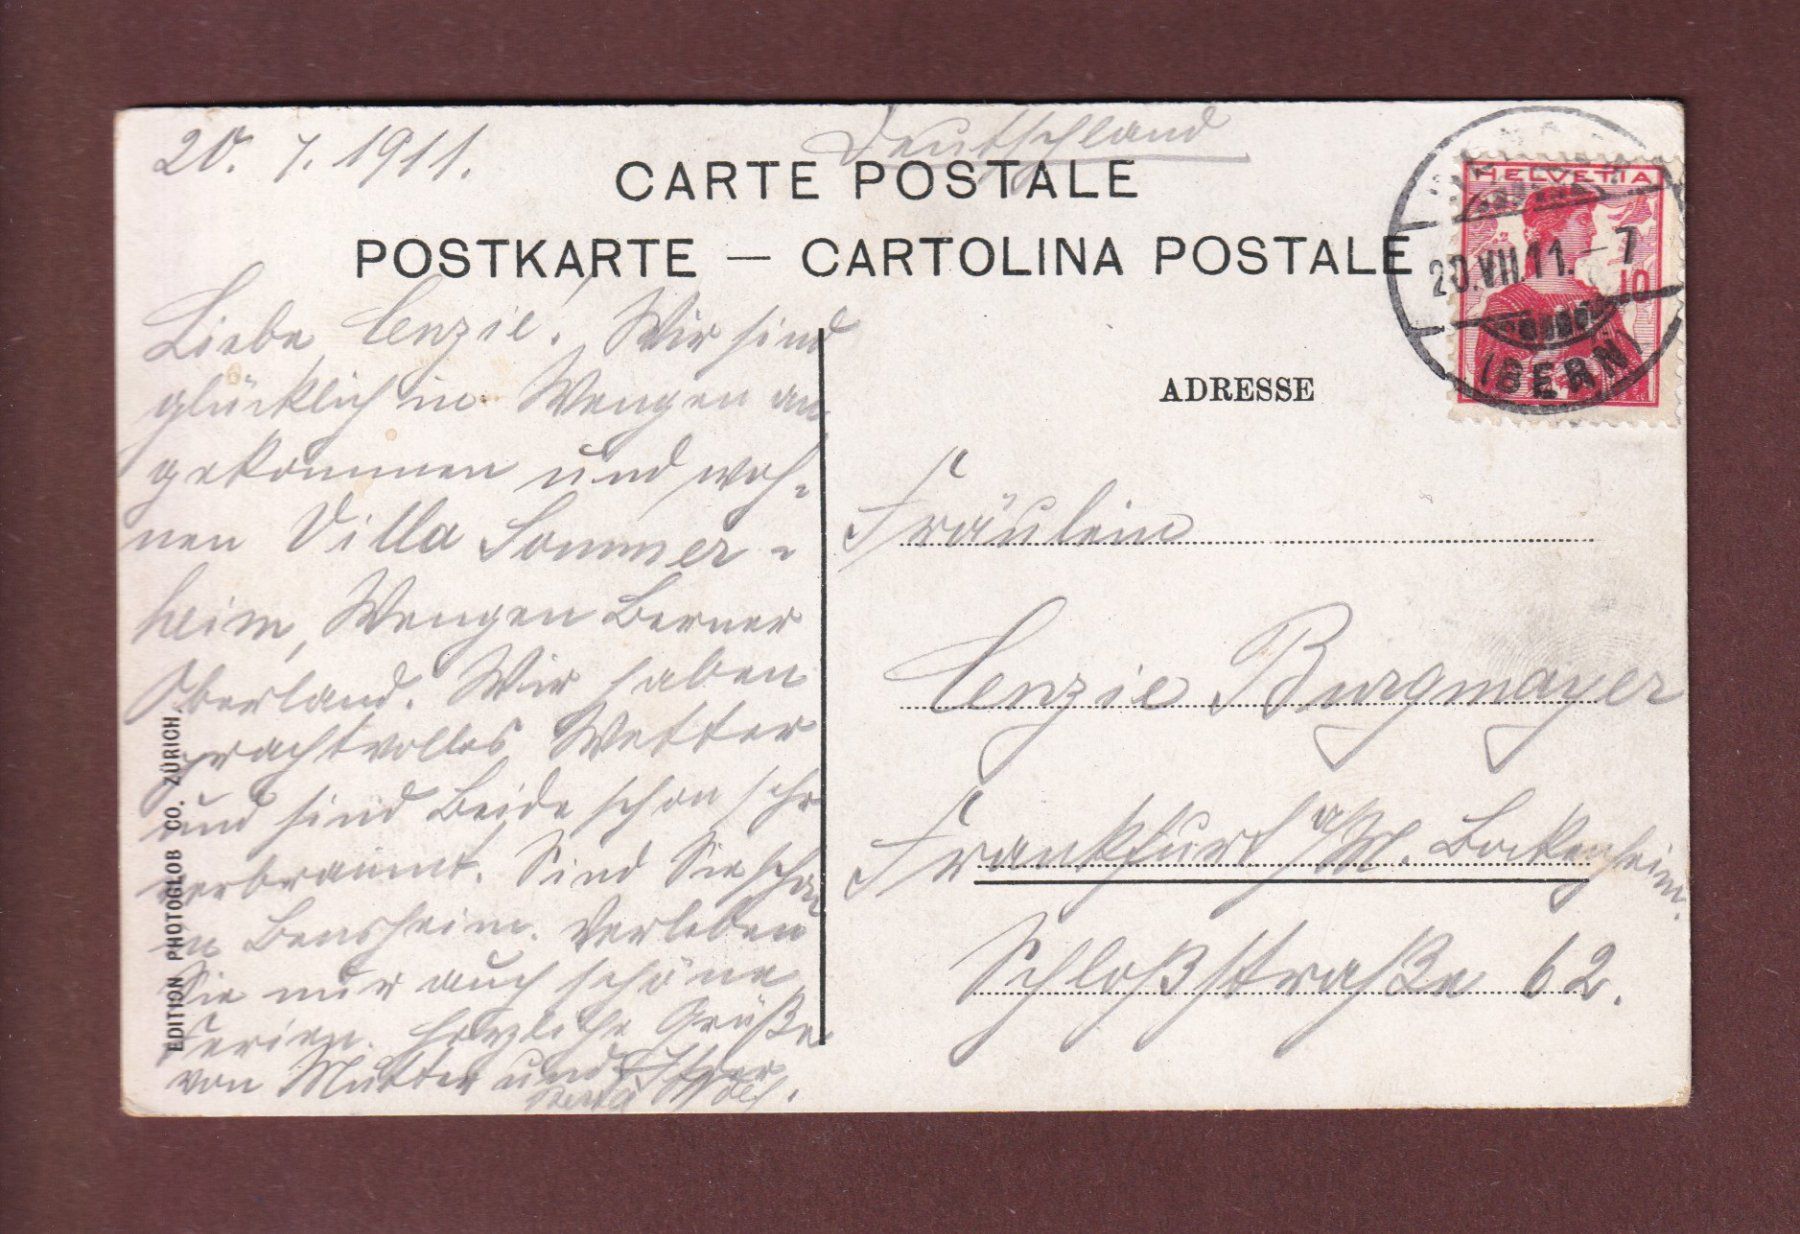 20. 7. 1911.
Deutschland
CARTE POSTALE
POSTKARTE — CARTOLINA POSTALE
HELVETIA
10
20.VII.11.-7
(BERN)
Liebe Cenzie! Wir sind
glücklich in Wengen an-
gekommen und woh-
nen Villa Sommer-
heim, Wengen Berner
Oberland. Wir haben
prachtvolles Wetter
und sind beide schon sehr
verbrannt. Sind Sie schon
in Bensheim. Verleben
Sie nur auch schöne
Ferien. Herzliche Grüße
von Mutter und Ihrer
EDITION PHOTOGLOB CO. ZÜRICH.
ADRESSE
Fräulein
Cenzie Burgmayer
Frankfurt a/M. Bockenheim.
Schloßstraße 62.